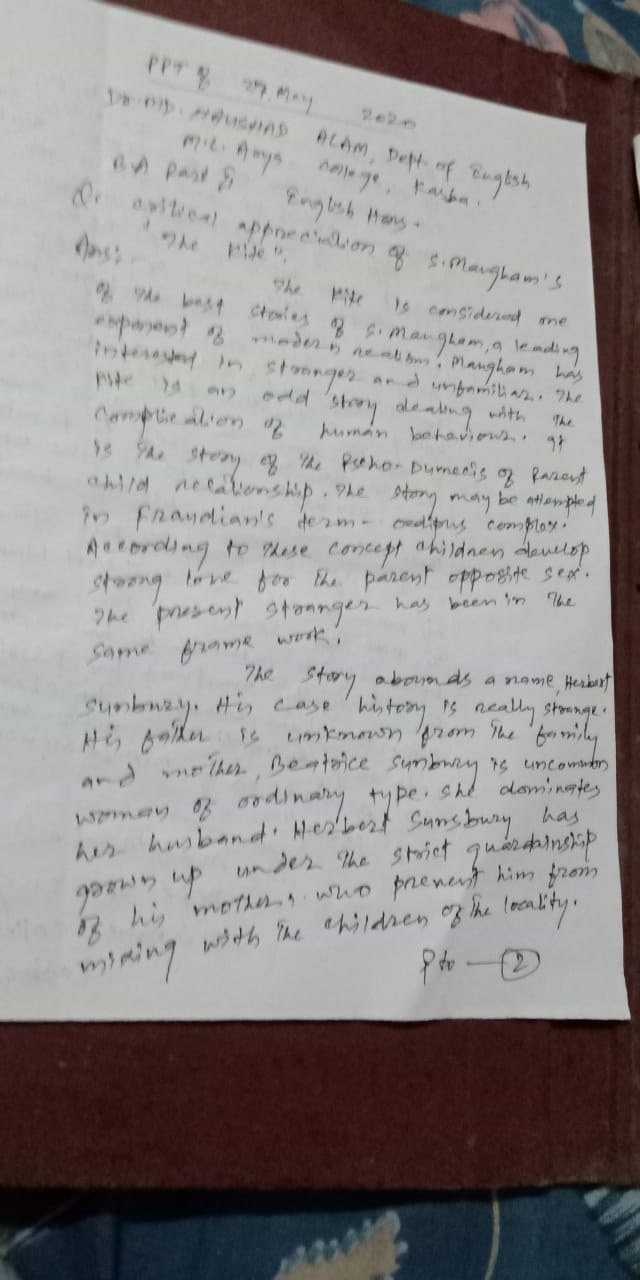 PPT of 27, May 2020
Dr. MD. NAUSHAD ALAM, Dept. of English
M.L. Arya College, Kasba.
B.A Part English Hons.
Q. critical appreciation of S. Maugham's
"The Kite".
Ans:- The Kite is considered one
of the best stories of S. Maugham, a leading
exponent of modern realism. Maugham has
interested in stranger and unfamiliar. The
Kite is an odd story dealing with the
Complication of human behaviour. It
is the story of the Pscho-Dumecis of Parent
child relationship. The story may be attempted
in Fraudian's term - oedipus complex.
According to these concept children develop
strong love for the parent opposite sex.
The present stranger has been in the
same frame work.
The story abounds a name, Herbert
Sunbury. His case history is really strange.
His father is unknown from the family
and mother, Beatrice Sunbury is uncommon
woman of ordinary type. She dominates
her husband. Herbert Sunsbury has
grown up under the strict guardainship
of his mother, who prevent him from
mixing with the children of the locality.
Pto — 2